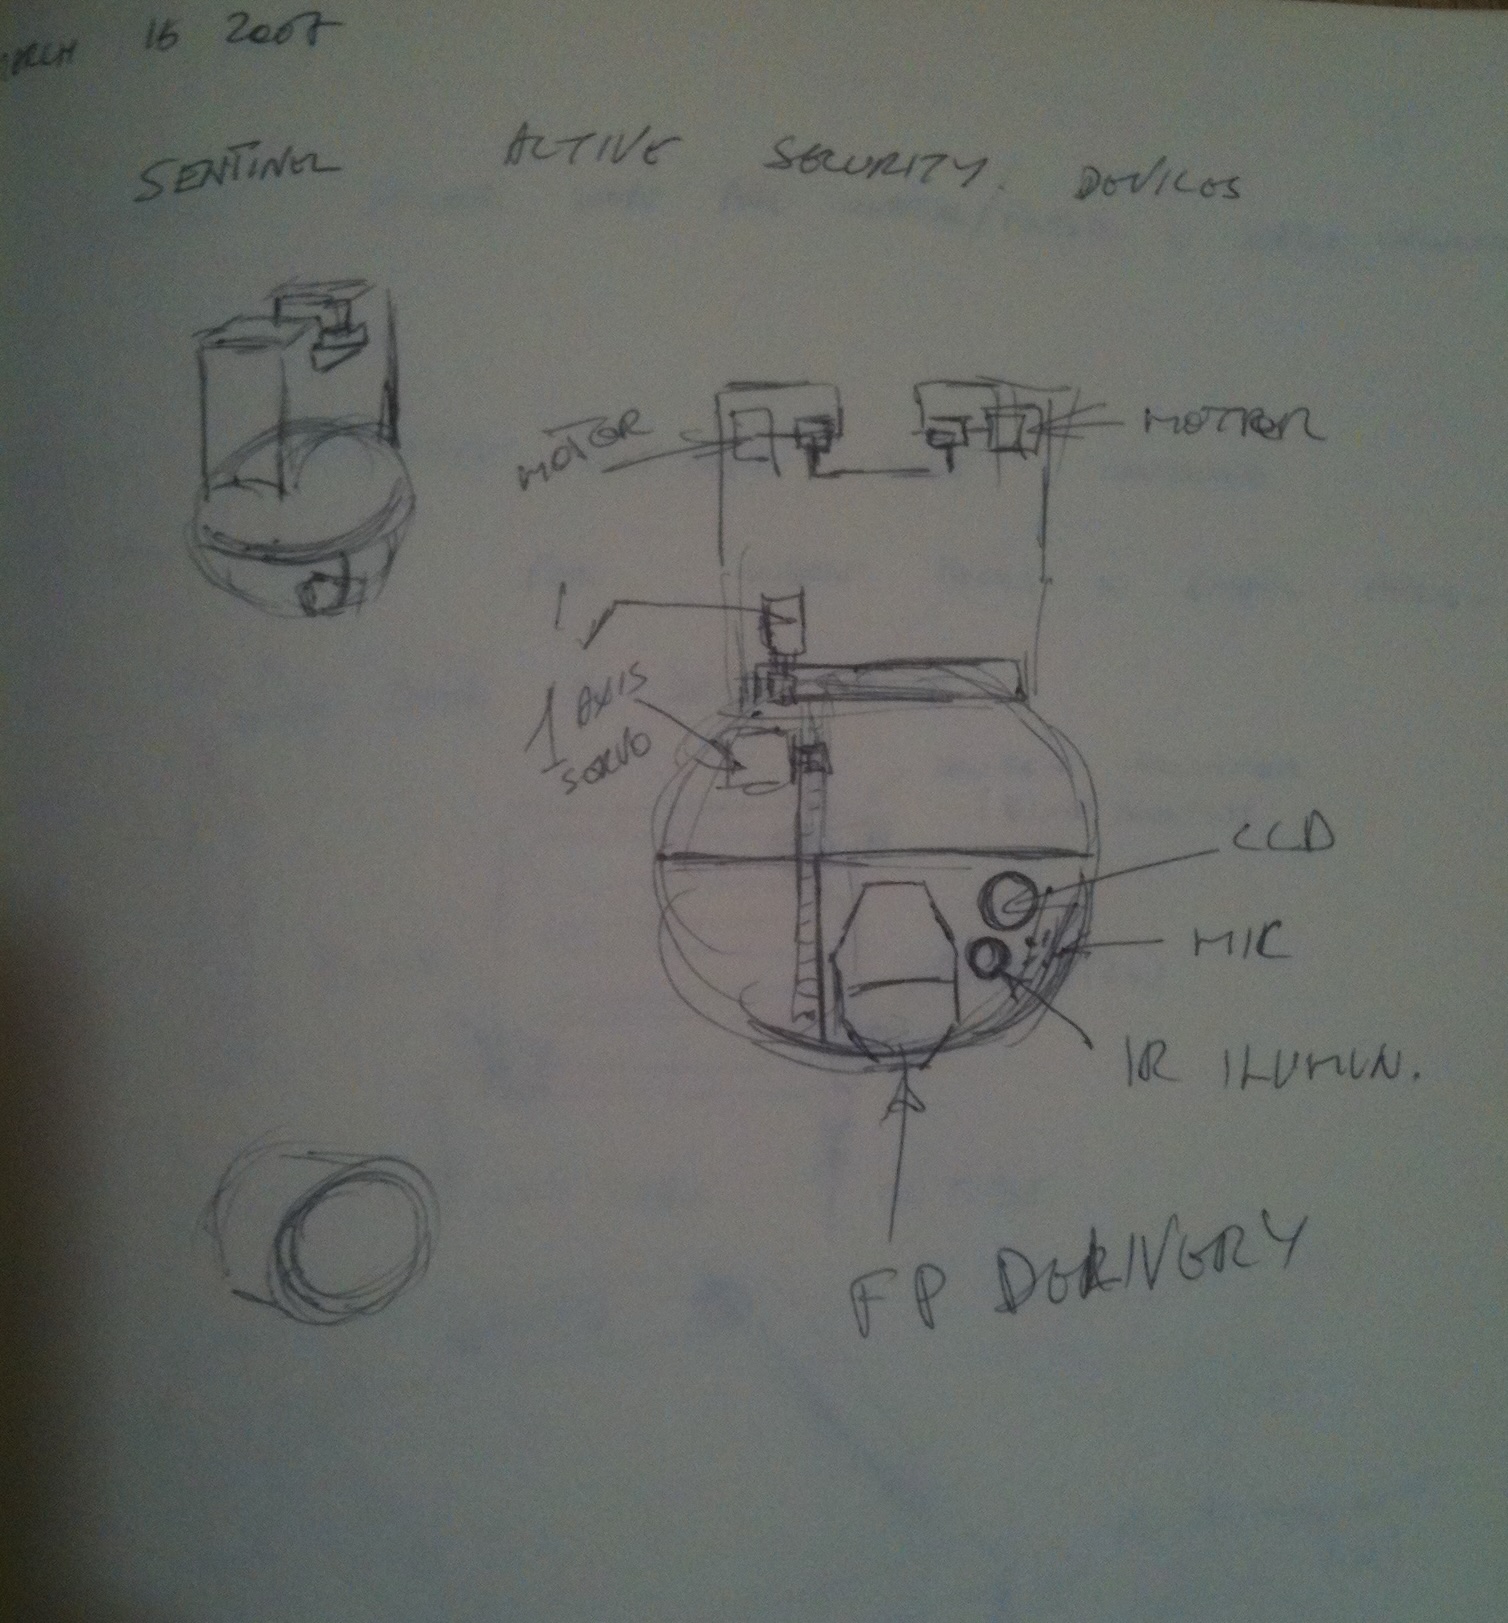 16 2007
SENTINEL ACTIVE SECURITY. DEVICES
MOTOR
MOTOR
1 AXIS
SERVO
CCD
MIC
IR ILUMIN.
FP DERIVERY